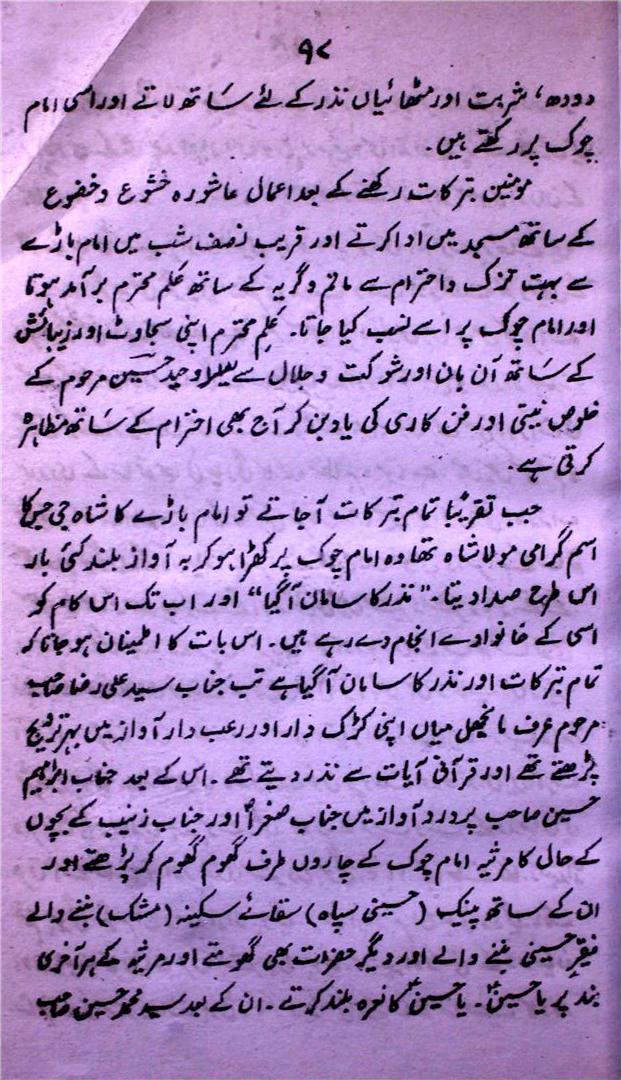 ۹۷
دودھ، شربت اور مٹھائیاں نذر کے لئے ساتھ لاتے اور اسی امام
چوک پر رکھتے ہیں۔
مومنین تبرکات رکھنے کے بعد اعمال عاشورہ خشوع و خضوع
کے ساتھ مسجد میں ادا کرتے اور قریب نصف شب میں امام باڑے
سے بہت تزک و احترام سے ماتم و گریہ کے ساتھ علم محترم برآمد ہوتا
اور امام چوک پر اسے نصب کیا جاتا۔ علم محترم اپنی سجاوٹ اور زیبائش
کے ساتھ آن بان اور شوکت و جلال سے وحید حسین مرحوم کے
خلوص نیتی اور فن کاری کی یاد بن کر آج بھی احترام کے ساتھ مظاہرہ
کرتی ہے۔
جب تقریباً تمام تبرکات آجاتے تو امام باڑے کا شاہ جی جس کا
اسم گرامی مولا شاہ تھا وہ امام چوک پر کھڑا ہو کر بہ آواز بلند کئی بار
اس طرح صدا دیتا۔ "نذر کا سامان آگیا" اور اب تک اس کام کو
اسی کے خانوادے انجام دے رہے ہیں۔ اس بات کا اطمینان ہو جاتا کہ
تمام تبرکات اور نذر کا سامان آگیا ہے تب جناب سید علی رضا صاحب
مرحوم عرف منجھلے میاں اپنی کڑک دار اور رعب دار آواز میں
پڑھتے تھے اور قرآنی آیات سے نذر دیتے تھے۔ اس کے بعد جناب ابراہیم
حسین صاحب پر درد آواز میں جناب صغراؑ اور جناب زینب کے بچوں
کے حال کا مرثیہ امام چوک کے چاروں طرف گھوم گھوم کر پڑھتے اور
ان کے ساتھ پیک (حسینی سپاہ) سقائے سکینہ (مشک) بننے والے
فقیر حسینی بننے والے اور دیگر حضرات بھی گھومتے اور مرثیہ کے ہر آخری
بند پر یا حسینؑ۔ یا حسینؑ کا نعرہ بلند کرتے۔ ان کے بعد سید محمد حسین صاحب